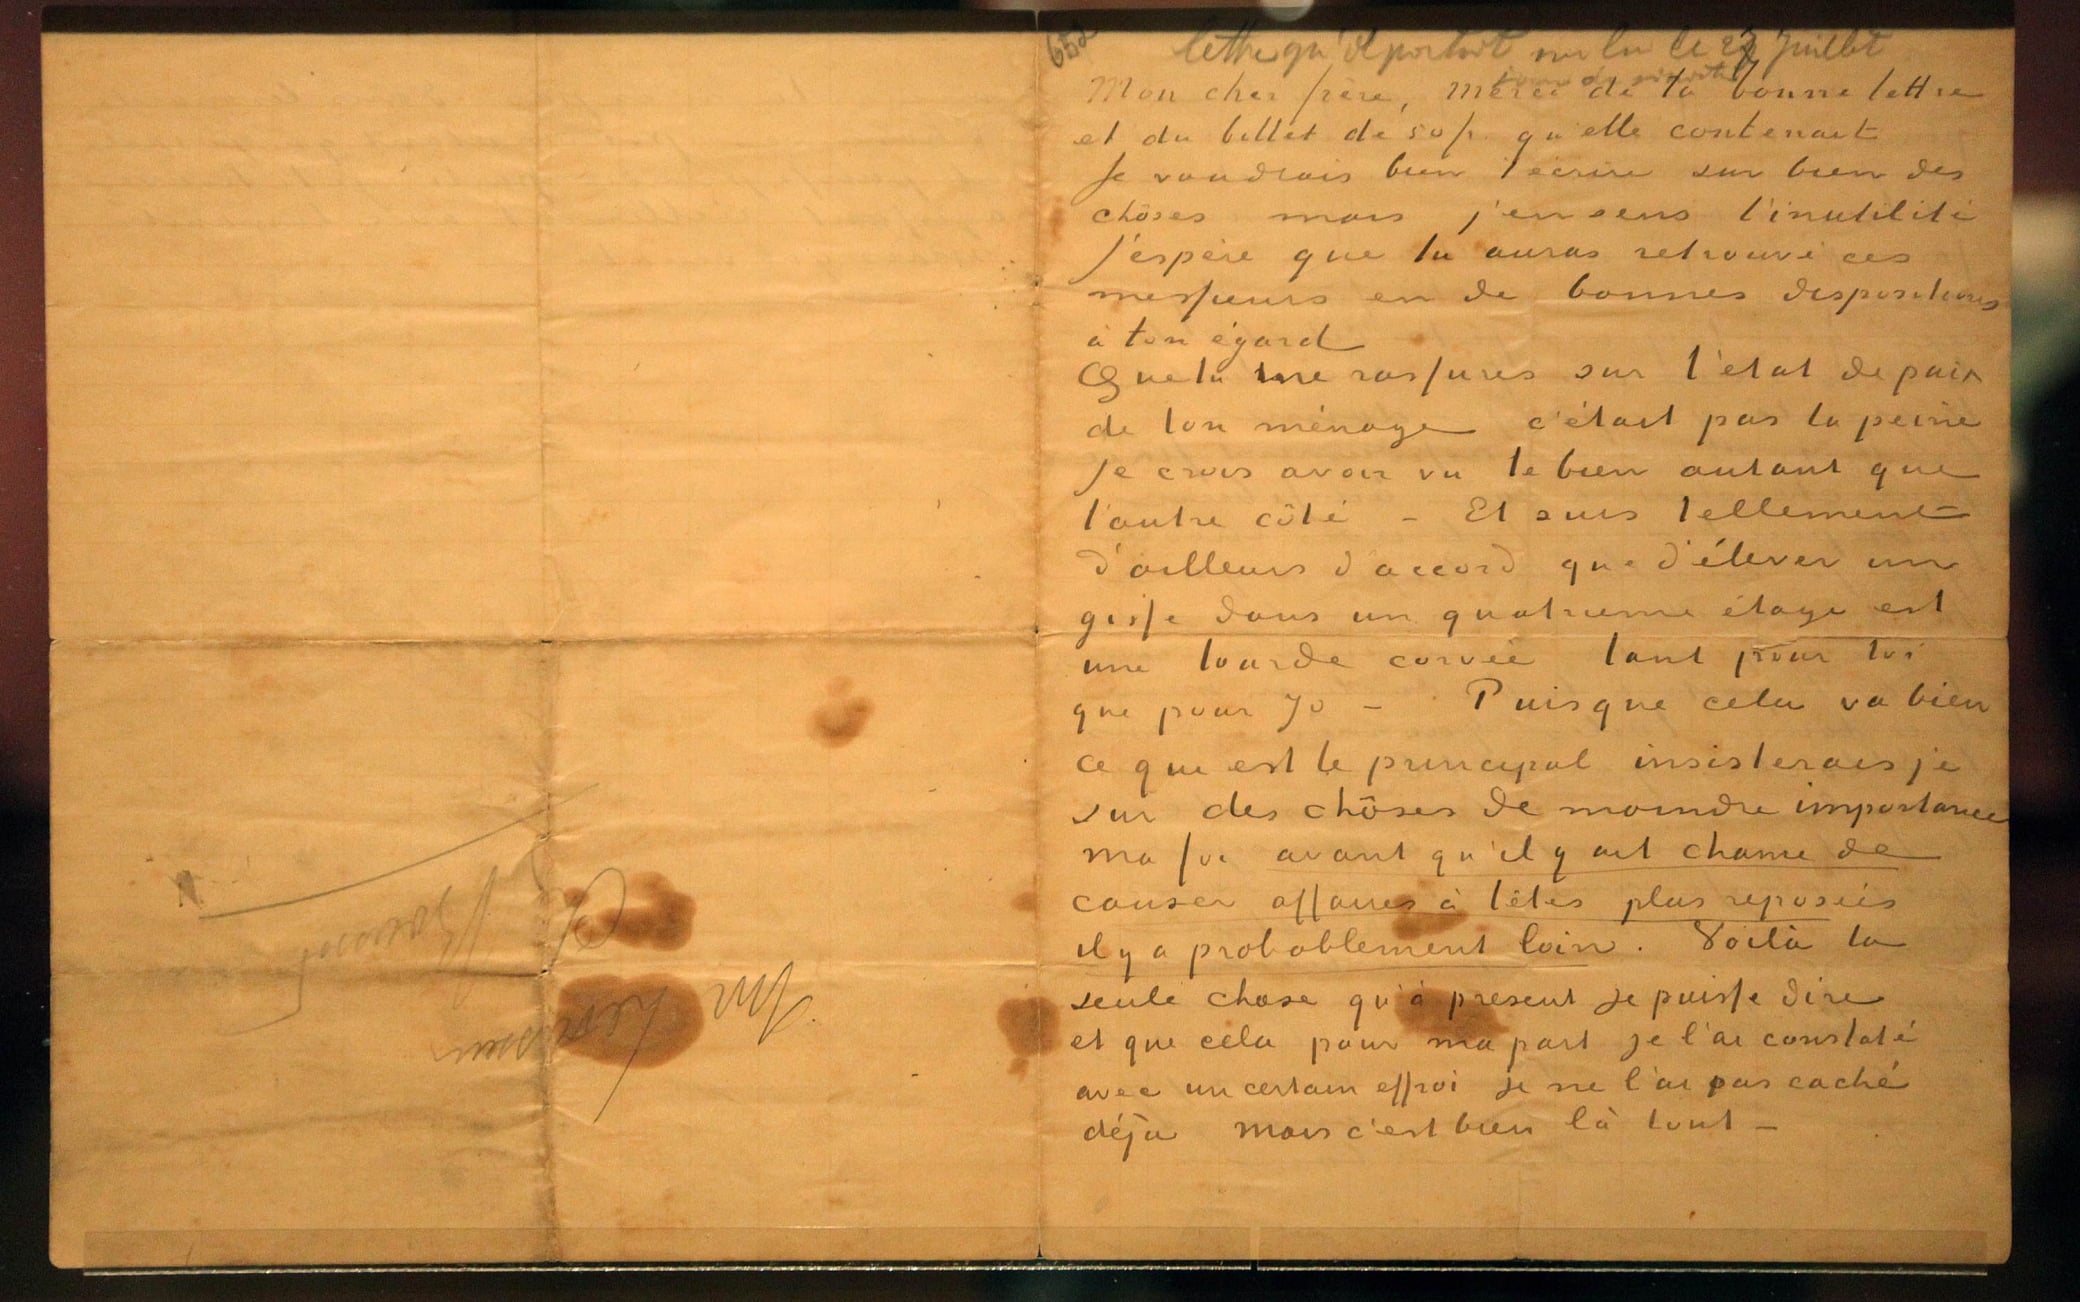 652
lettre qu'il portait sur lui le 27 Juillet
Mon cher frère, Merci de ta bonne lettre
et du billet de 50 fr. qu'elle contenait
Je voudrais bien t'écrire sur bien des
chôses mais j'en sens l'inutilité
J'espère que tu auras retrouvé ces
messieurs en de bonnes dispositions
à ton égard
Que tu me rassures sur l'état de paix
de ton ménage c'était pas la peine
Je crois avoir vu le bien autant que
l'autre côté – Et suis tellement
d'ailleurs d'accord que d'élever un
gosse dans un quatrième étage est
une lourde corvée tant pour toi
que pour Jo – Puisque cela va bien
ce que est le principal insisterais je
sur des chôses de moindre importance
ma foi avant qu'il y ait chance de
causer affaires à têtes plus reposées
il y a probablement loin. Voilà la
seule chose qu'à présent je puisse dire
et que cela pour ma part je l'ai constaté
avec un certain effroi je ne l'ai pas caché
déjà mais c'est bien là tout –